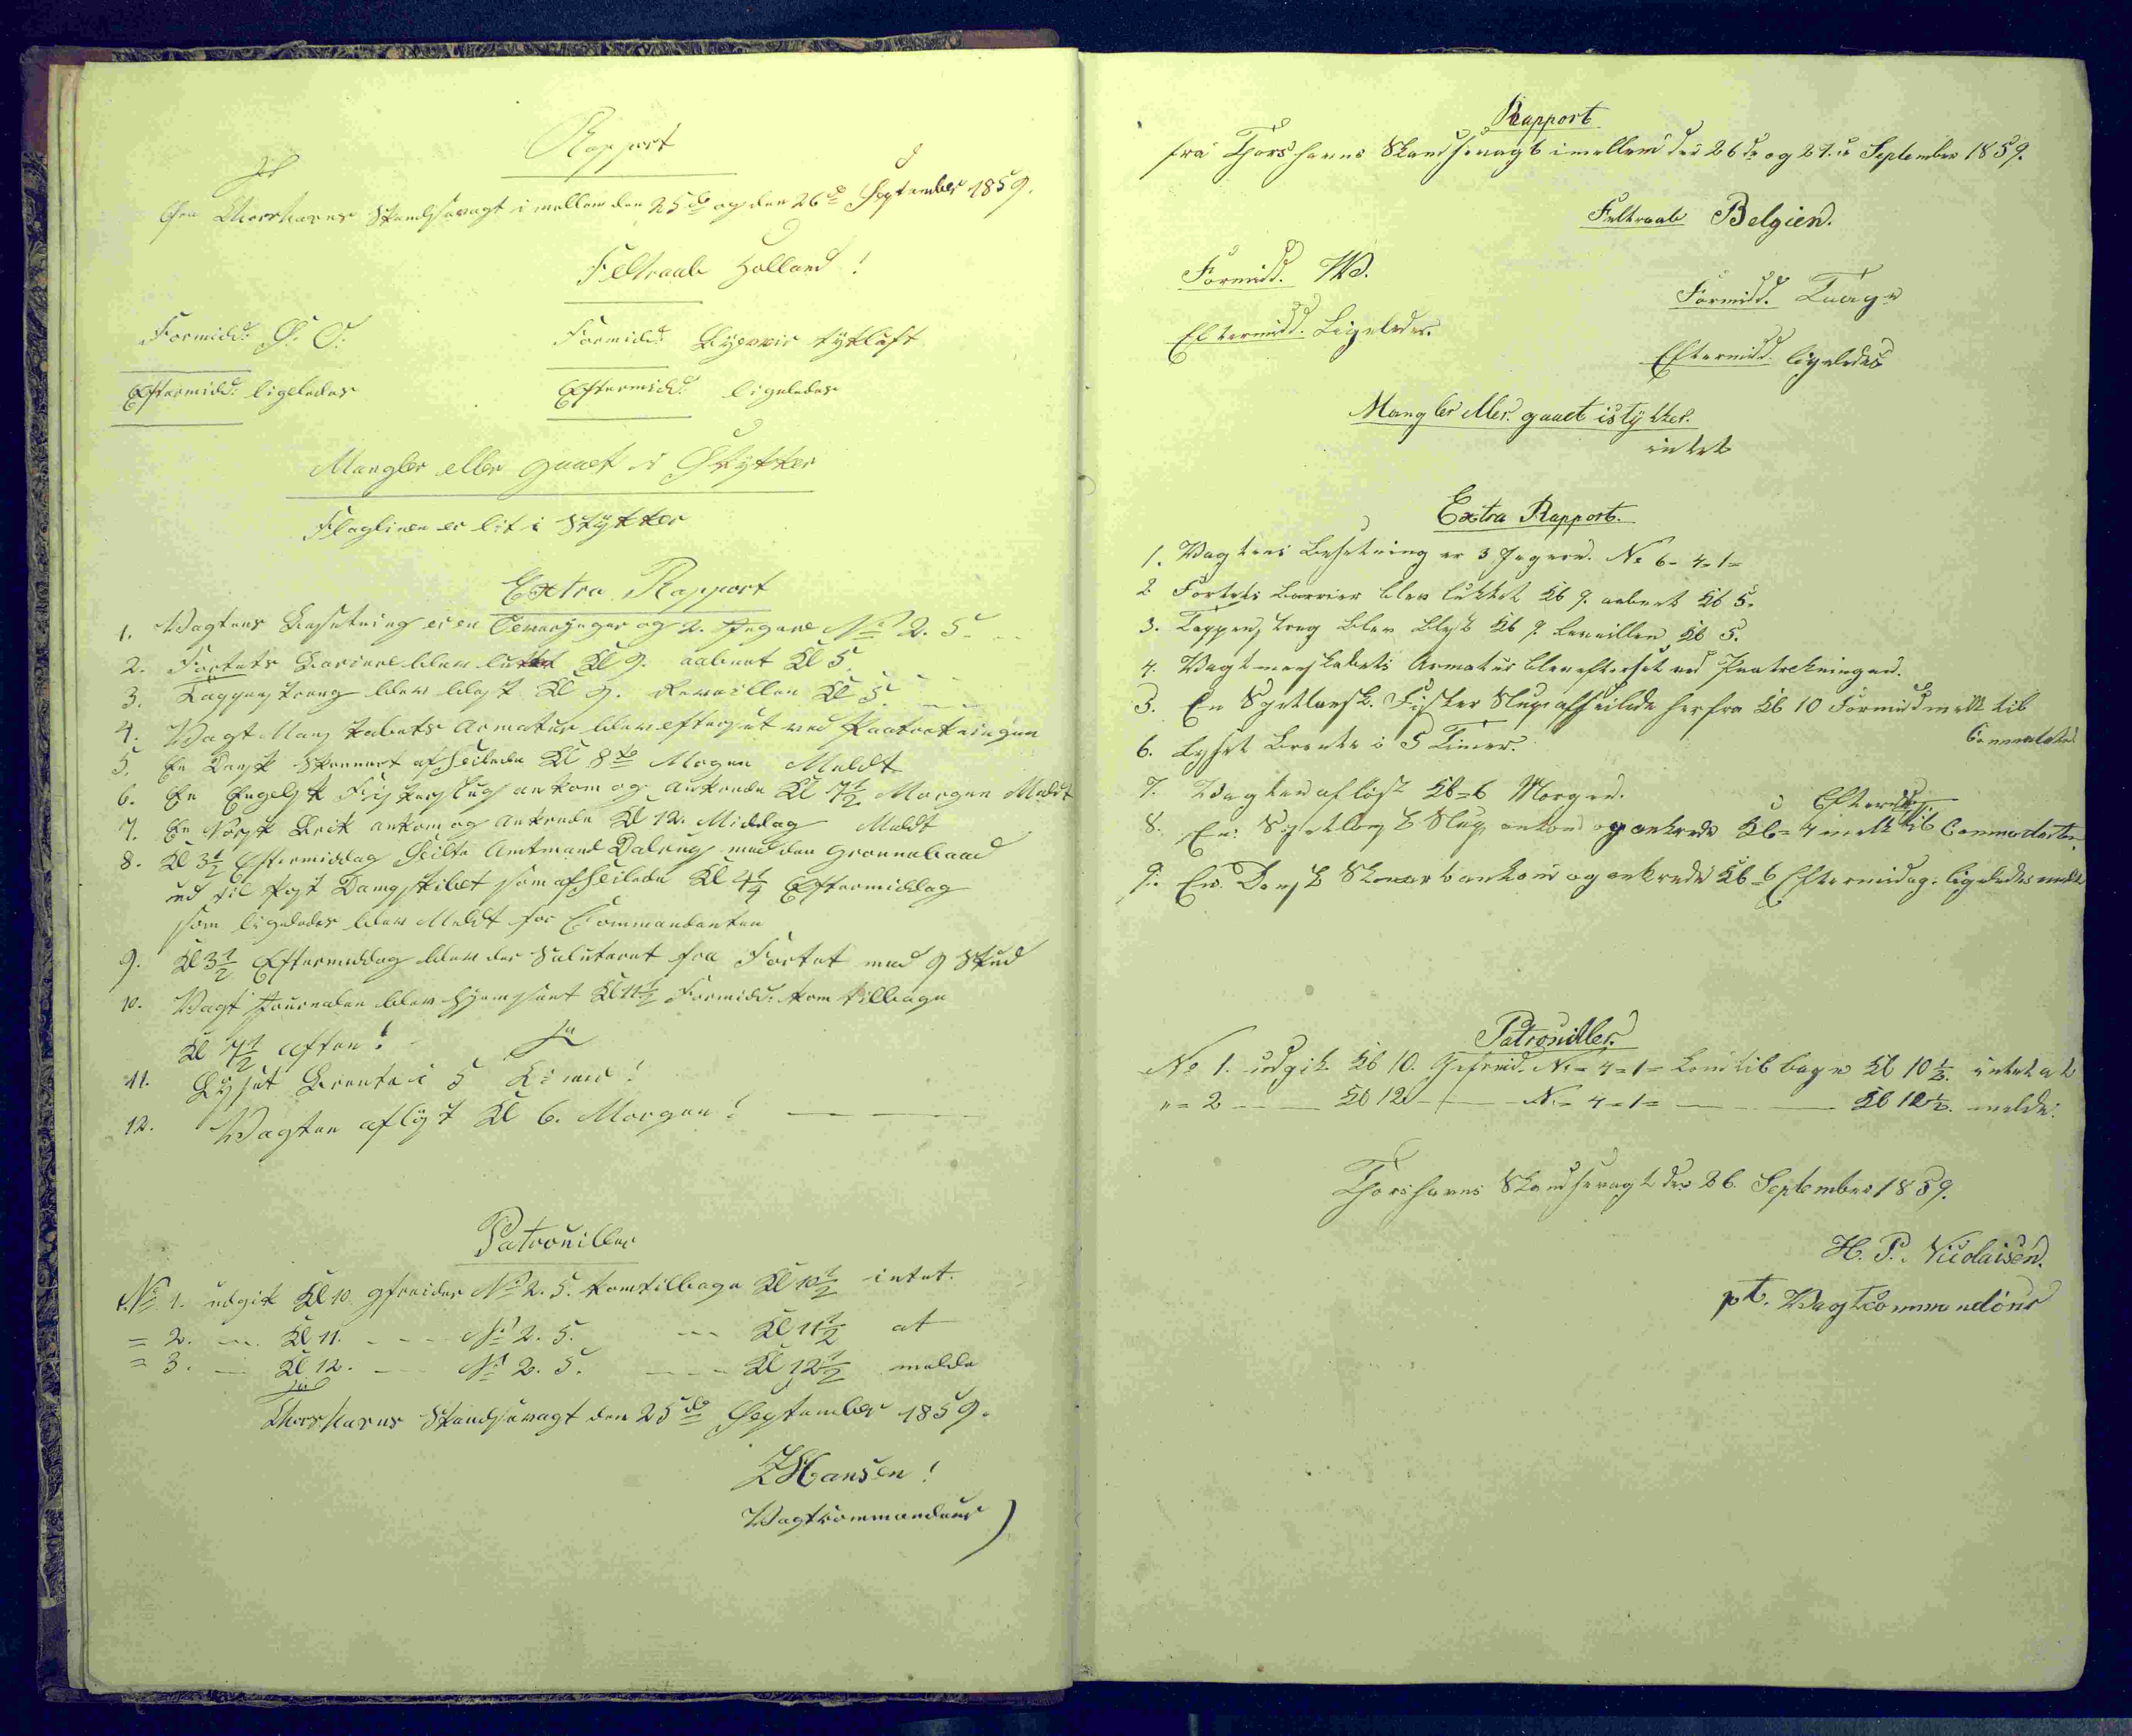 Rapport
fra Thorshavns Skandsevagt imellem den 25de og den 26de September 1859.
Feltraab Holland!
Formidd: S. O. Formidd:
Eftermidd: ligeledes Eftermidd: ligeledes
Mangler eller gaaet i Stykker
Flaglinen er lit i Stykker
Extra Rapport
1. Vagtens Besetning er en og 2. Jegere No 2. 5.
2. Fortets Bariere blev lukket Kl 9. aabnet Kl 5.
3. Tappenstreng blev blest Kl 9. Reveillen Kl 5
4. Vagt Manskabets Armatur blev efterset ved Paatrekningen
5. En Dansk Skonnert afseilede Kl 8te Mogen Meldt
6. En Engelsk Fiskerslup ankom og ankrede Kl 7½ Morgen Meldt
7. En Norsk Brik ankom og ankrede Kl 12. Middag Meldt
8. Kl 3½ Eftermiddag Seilte Amtmand Dalrup med den Grønnebaad
ud til Post Dampskibet som afseilede Kl 4¼ Eftermiddag
som ligeledes blev Meldt for Commandanten
9. Kl 3½ Eftermiddag blev der Saluteret fra Fortet med 9 Skud
10. Vagt Journalen blev hjemsent Kl 11½ Formidd: kom tilbage
Kl 7½ aften!
11. Lyset Brente i 5 Timer!
12. Vagten afløst Kl 6. Morgen!
Patrouiller
No 1. udgik Kl 10. Gefreider No 2. 5. kom tilbage Kl 10½ intet
= 2. — Kl 11. — No 2. 5. — Kl 11½ at
= 3. — Kl 12. — No 2. 5. — Kl 12½ melde
Thorshavns Skandsevagt den 25de September 1859.
Hansen!
Vagtcommandeur
Rapport
fra Thorshavns Skandsevagt imellem den 26de og 27.de September 1859.
Feltraab Belgien.
Formidd. Formidd. Taage
Eftermidd. Ligeledes. Eftermidd. ligeledes
Mangler eller gaaet istykker.
intet
Extra Rapport.
1. Vagtens Besetning er 3 Jegere. No 6-4-1=
2 Fortets Barrier blev lukket Kl 9. aabnet Kl 5.
3. Tappenstreg blev blest Kl 9. Reveillen Kl 5.
4. Vagtmanskabets Armatur blev efterset ved Paatrekningen.
5. En Sjetlansk. Fisker Slup afseilede herfra Kl 10 Formidd meldt til
Commandanten
6. Lyset Brente i 5 Timer.
7. Vagten afløst Kl=6 Morgen.
Eftermidd.
8. En Sjetlansk Slup ankom og ankrede Kl=4 meldt til Commandanten.
9. En Dansk Skonnert ankom og ankrede Kl=6 Eftermidag. ligeledes meldt
Patrouiller.
No 1. udgik Kl 10. Gefreid. No=4=1= kom tilbage Kl 10½. intet at
"=2 — Kl 12 — No=4=1= — Kl 12½. melde.
Thorshavns Skandsevagt den 26. September 1859.
H. P. Nicolaisen.
pt. Vagtcommandeur